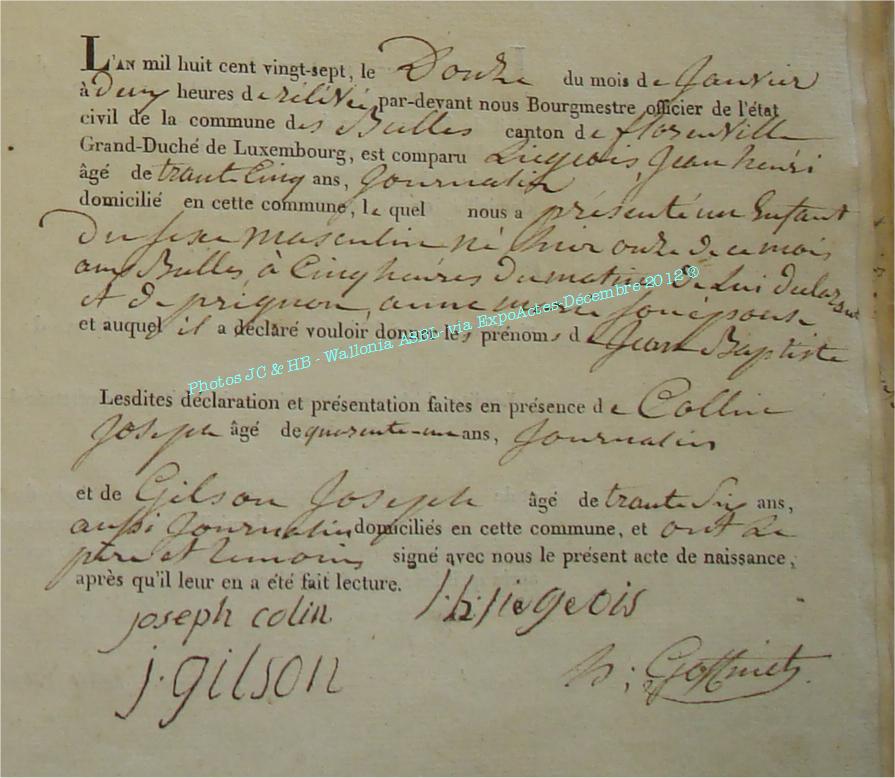 L'AN mil huit cent vingt-sept, le Douze du mois de Janvier
à deux heures de rélévée par-devant nous Bourgmestre officier de l'état
civil de la commune des Bulles canton de florenville
Grand-Duché de Luxembourg, est comparu Liegeois, Jean henri
âgé de trante Cinq ans, Journalin
domicilié en cette commune, le quel nous a présenté un Enfant
du sexe masculin né hier onze de ce mois
aux Bulles à Cinq heures du matin, de Lui declarant
et de prignon, anne marie son épouse
et auquel il a déclaré vouloir donner les prénoms de Jean Baptiste
Photos JC & HB - Wallonia ASBL-via ExpoActes-Décembre 2012®
Lesdites déclaration et présentation faites en présence de Collin
Joseph âgé de quarente-un ans, Journalin
et de Gilson Joseph âgé de trante Six ans,
aussi Journalin domiciliés en cette commune, et ont Le
père et temoins signé avec nous le présent acte de naissance,
après qu'il leur en a été fait lecture.
joseph colin j.h.liegeois
j.gilson h; Goffinet